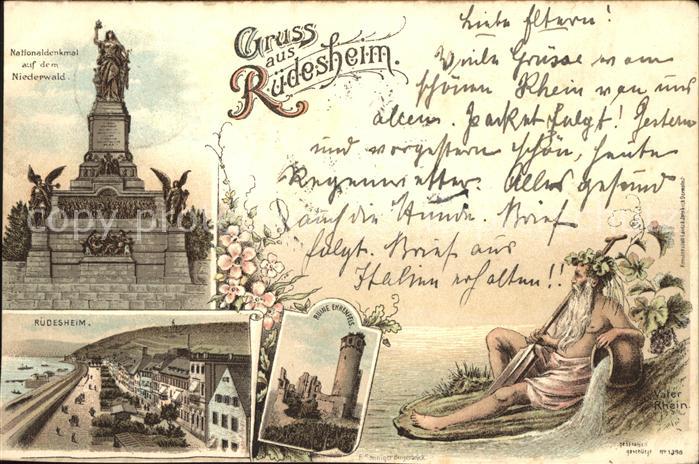 Nationaldenkmal
auf dem
Niederwald.
Gruss
aus
Rüdesheim.
Liebe Eltern!
Viele Grüsse vom
schönen Rhein von uns
allen. Packet folgt! Gestern
und vorgestern schön, heute
Regenwetter. Alles gesund
auch die Hunde. Brief
folgt. Brief aus
Italien erhalten!!
RÜDESHEIM.
RUINE EHRENFELS
Vater
Rhein.
gesetzlich
geschützt No 1396